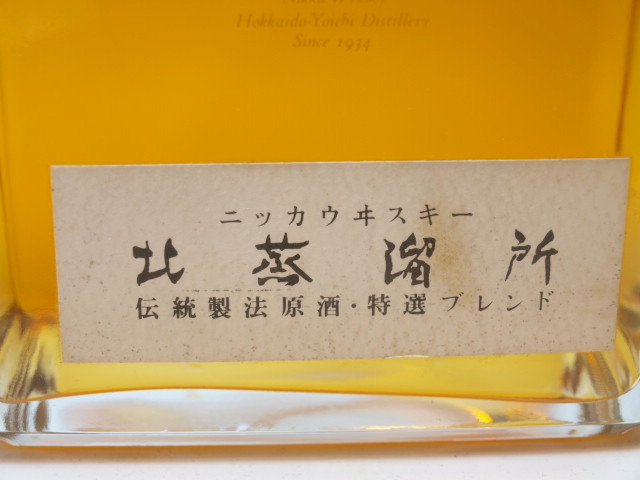 Hokkaido-Yoichi Distillery
Since 1934
ニッカウヰスキー
北蒸溜所
伝統製法原酒・特選ブレンド